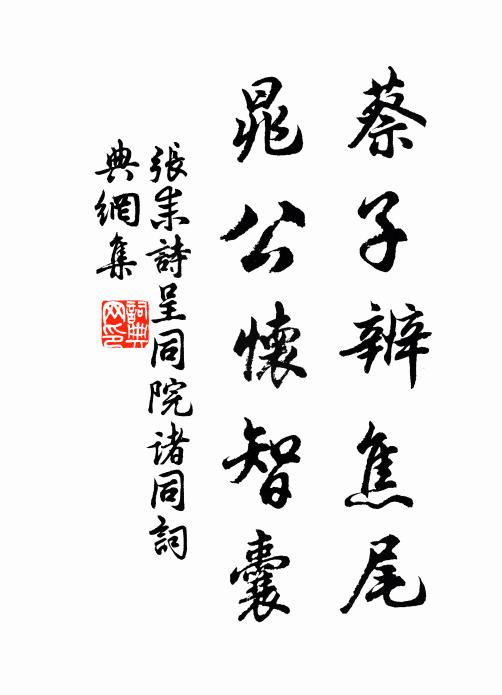 蔡子辨焦尾
晁公懷智囊
張耒詩呈同院諸同詞
典網集
詞典網印